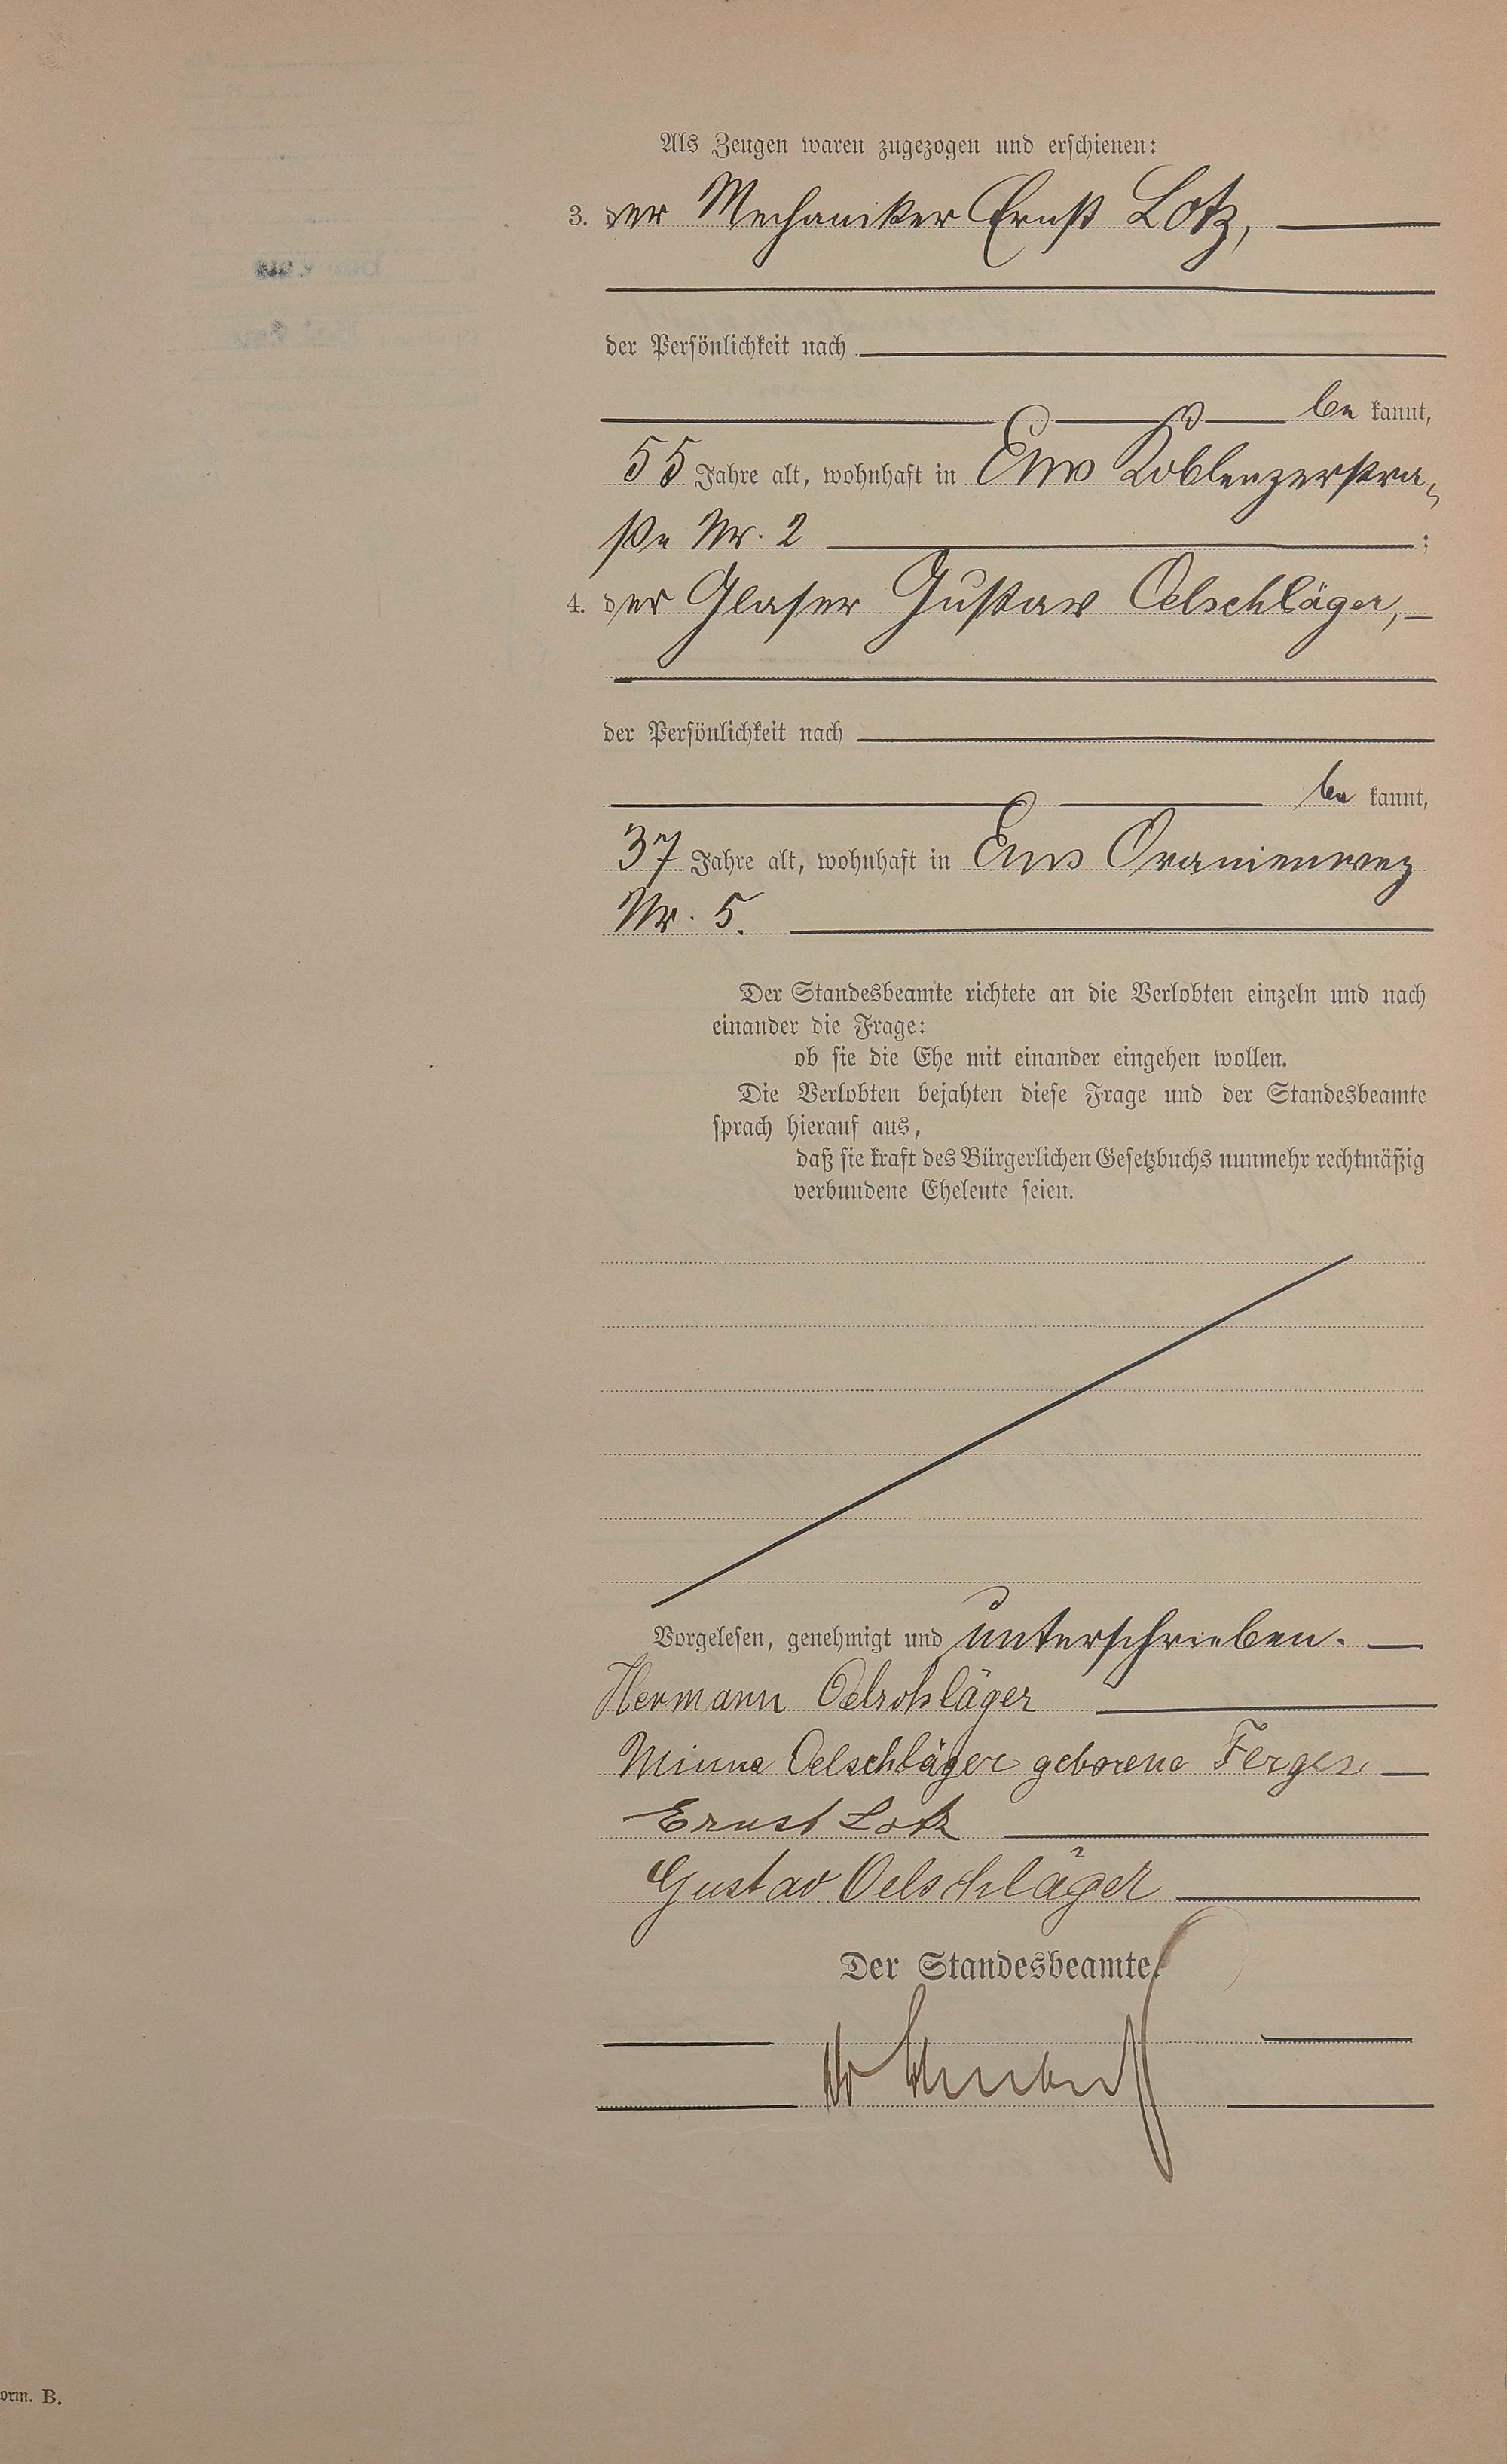 Als Zeugen waren zugezogen und erschienen:
3. der Mechaniker Ernst Lotz,
der Persönlichkeit nach
be kannt,
55 Jahre alt, wohnhaft in Ems Koblenzerstra-
ße Nr. 2 ;
4. der Glaser Gustav Oelschläger,
der Persönlichkeit nach
be kannt,
37 Jahre alt, wohnhaft in Ems Oranienweg
Nr. 5.
Der Standesbeamte richtete an die Verlobten einzeln und nach
einander die Frage:
ob sie die Ehe mit einander eingehen wollen.
Die Verlobten bejahten diese Frage und der Standesbeamte
sprach hierauf aus,
daß sie kraft des Bürgerlichen Gesetzbuchs nunmehr rechtmäßig
verbundene Eheleute seien.
Vorgelesen, genehmigt und unterschrieben.
Hermann Oelschläger
Minna Oelschläger geborene Ferges
Ernst Lotz
Gustav Oelschläger
Der Standesbeamte.
orm. B.